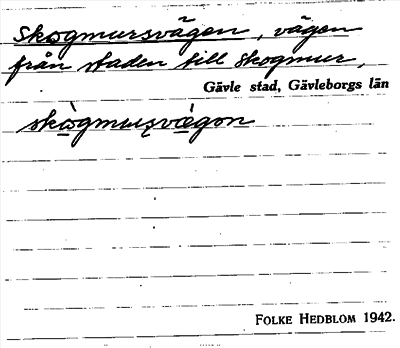 Skogmursvägen, vägen
från staden till Skogmur,
Gävle stad, Gävleborgs län
skògmuṣvægon
FOLKE HEDBLOM 1942.